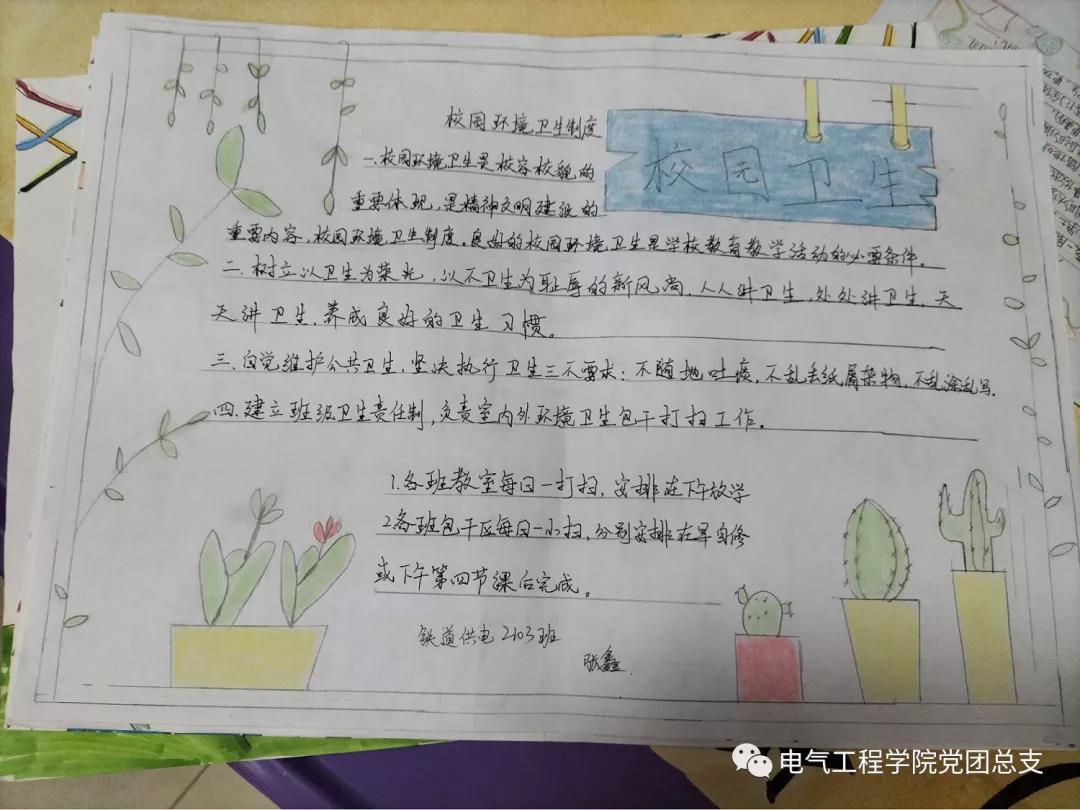 校园卫生
校园环境卫生制度
一.校园环境卫生是校容校貌的
重要体现，是精神文明建设的
重要内容，校园环境卫生制度。良好的校园环境卫生是学校教育教学活动的必要条件。
二.树立以卫生为荣光，以不卫生为耻辱的新风尚，人人讲卫生，处处讲卫生，天
天讲卫生，养成良好的卫生习惯。
三.自觉维护公共卫生，坚决执行卫生三不要求：不随地吐痰，不乱丢纸屑杂物，不乱涂乱写.
四.建立班级卫生责任制，负责室内外环境卫生包干打扫工作。
1.各班教室每日一打扫，安排在下午放学
2.各班包干区每日一小扫，分别安排在早自修
或下午第四节课后完成。
铁道供电2103班
张鑫.
电气工程学院党团总支